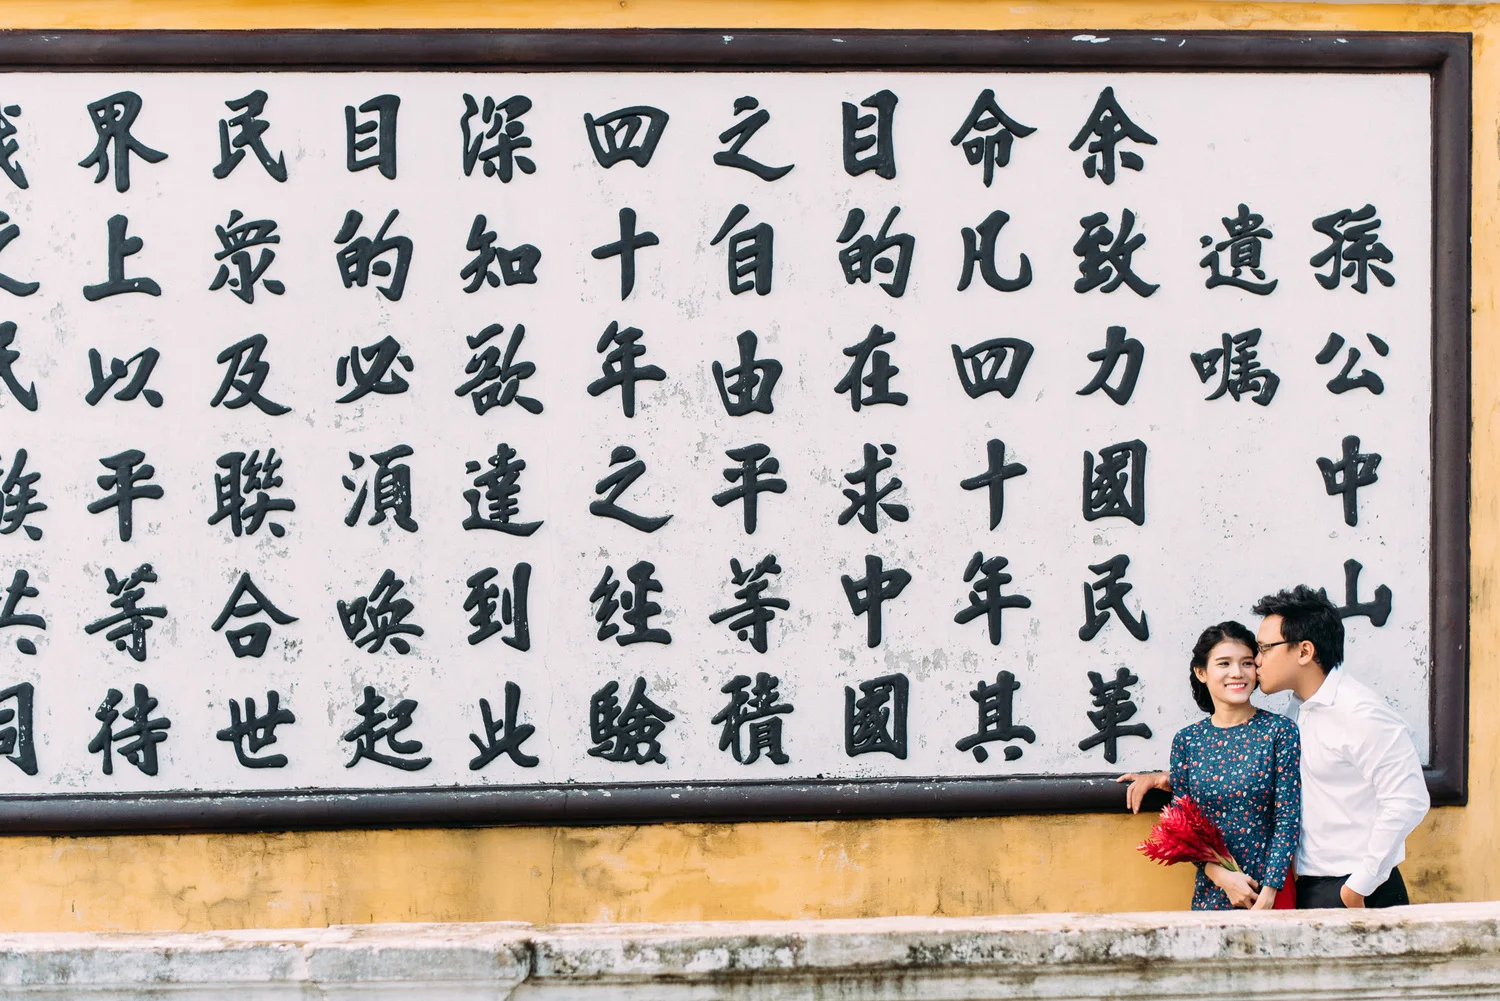 孫公中山
遺嘱
余致力國民革
命凡四十年其
目的在求中國
之自由平等積
四十年之經驗
深知欲達到此
目的必湏喚起
民衆及聯合世
界上以平等待
我之民族共同